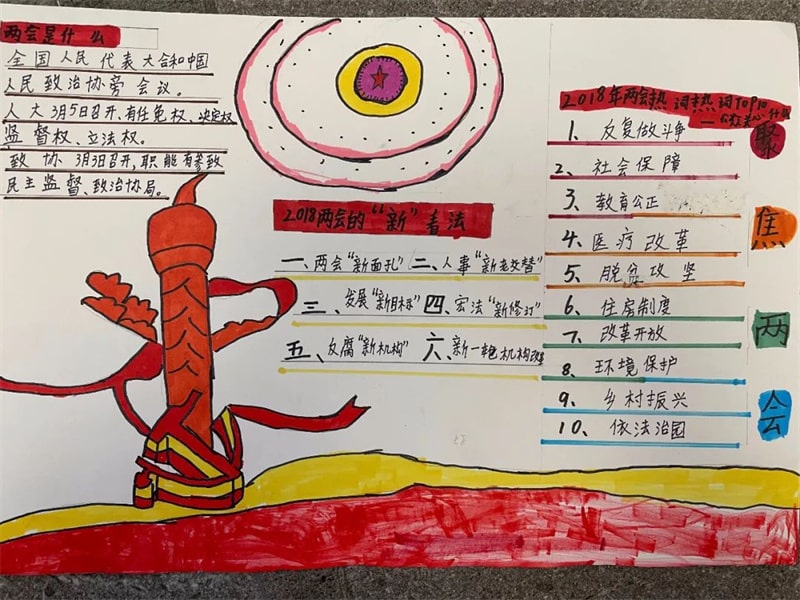 两会是什么
全国人民代表大合和中国
人民致治协旁会议。
人大3月5日召开,有任免权、决定权
监督权、立法权。
致协3月3日召开,职能有参致
民主监督、致治协局。
2018两会的“新”看法
一、两会“新面孔” 二、人事“新老交替”
三、发展“新目标” 四、宏法“新修订”
五、反腐“新机构” 六、新一轮机构改革
2018年两会热词热词TOP10
1、反复做斗争
2、社会保障
3、教育公正
4、医疗改革
5、脱盆攻坚
6、住房制度
7、改革开放
8、环境保护
9、乡村振兴
10、依法治国
聚
焦
两
会